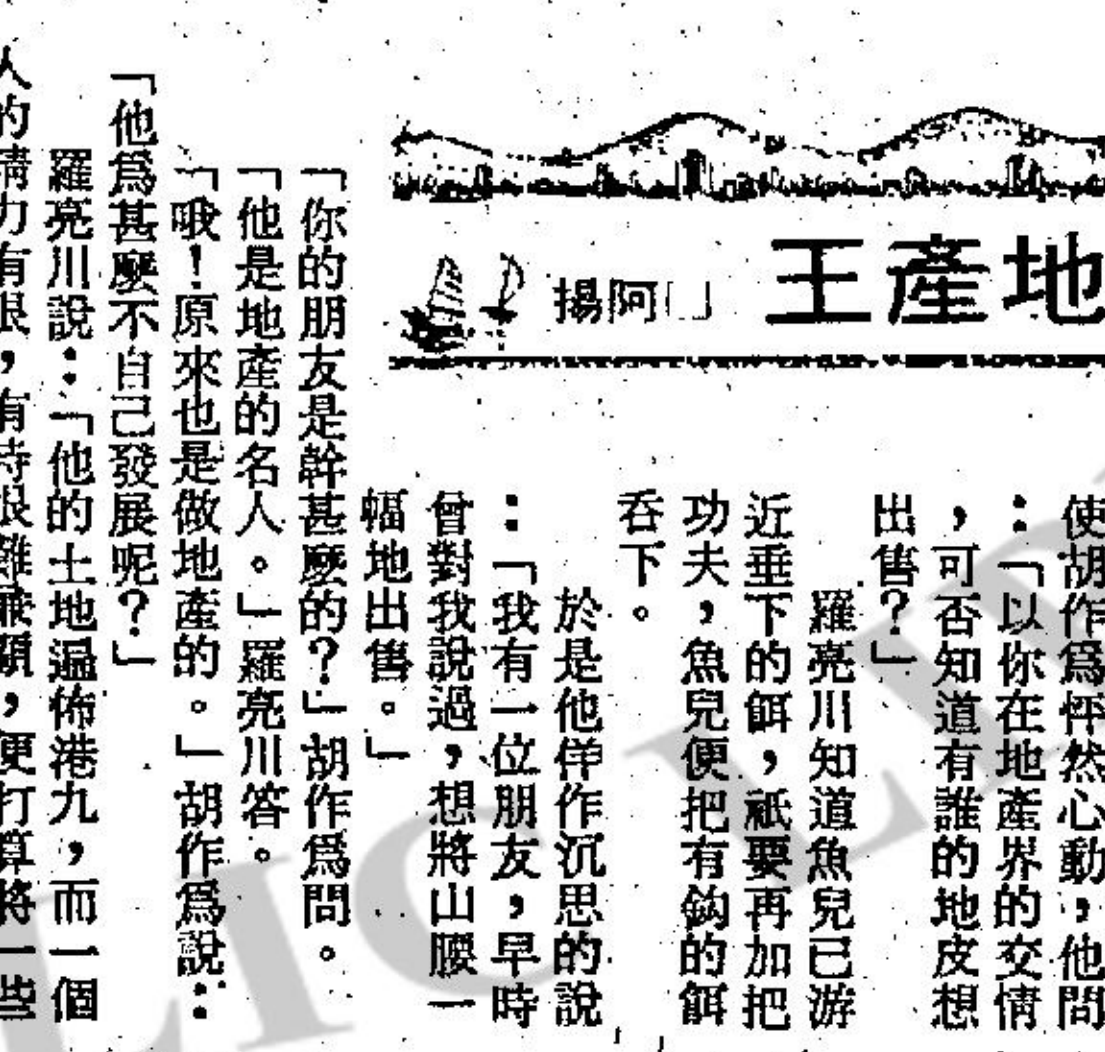 地產王
阿揚
使胡作爲怦然心動，他問
：「以你在地產界的交情
，可否知道有誰的地皮想
出售？」
羅亮川知道魚兒已游
近垂下的餌，祇要再加把
功夫，魚兒便把有鈎的餌
吞下。
於是他佯作沉思的說
：「我有一位朋友，早時
曾對我說過，想將山腰一
幅地出售。」
「你的朋友是幹甚麼的？」胡作爲問。
「他是地產的名人。」羅亮川答。
「哦！原來也是做地產的。」胡作爲說：
「他爲甚麼不自己發展呢？」
羅亮川說：「他的土地遍佈港九，而一個
人的精力有限，有時很難兼顧，便打算將一些